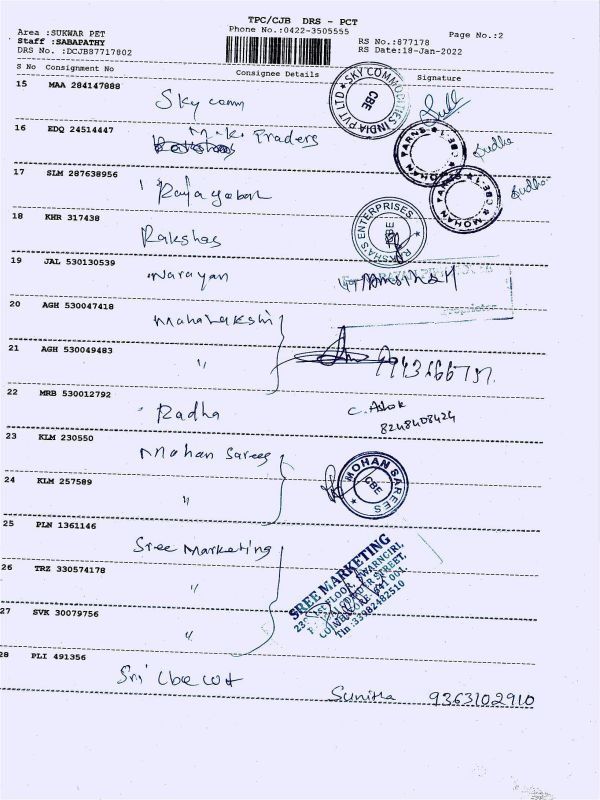 TPC/CJB DRS - PCT
Area :SUKWAR PET
Phone No.:0422-3505555
Page No.:2
Staff :SABAPATHY
RS No.:877178
DRS No. :DCJB87717802
RS Date:18-Jan-2022
S No Consignment No Consignee Details Signature
15 MAA 284147888
Sky comm
SKY COMMODITIES INDIA PVT LTD
CBE
16 EDQ 24514447
M.K. Traders
MOHAN YARNS
CBE-1
Sudha
17 SLM 287638956
MOHAN YARNS
CBE-1
Sudha
18 KHR 317438
Rakshas
RAKSHA'S ENTERPRISES
CBE
19 JAL 530130539
Narayan
20 AGH 530047418
Mahalakshmi
21 AGH 530049483
"
22 MRB 530012792
Radha
C. Ashok
8248408424
23 KLM 230550
Mohan Sarees
MOHAN SAREES
CBE
24 KLM 257589
"
25 PLN 1361146
Sree Marketing
SREE MARKETING
26 TRZ 330574178
"
1st FLOOR,
STREET,
COIMBATORE - 641 001.
Tin :33982482510
27 SVK 30079756
"
28 PLI 491356
Sri
Sunitha 9363102910